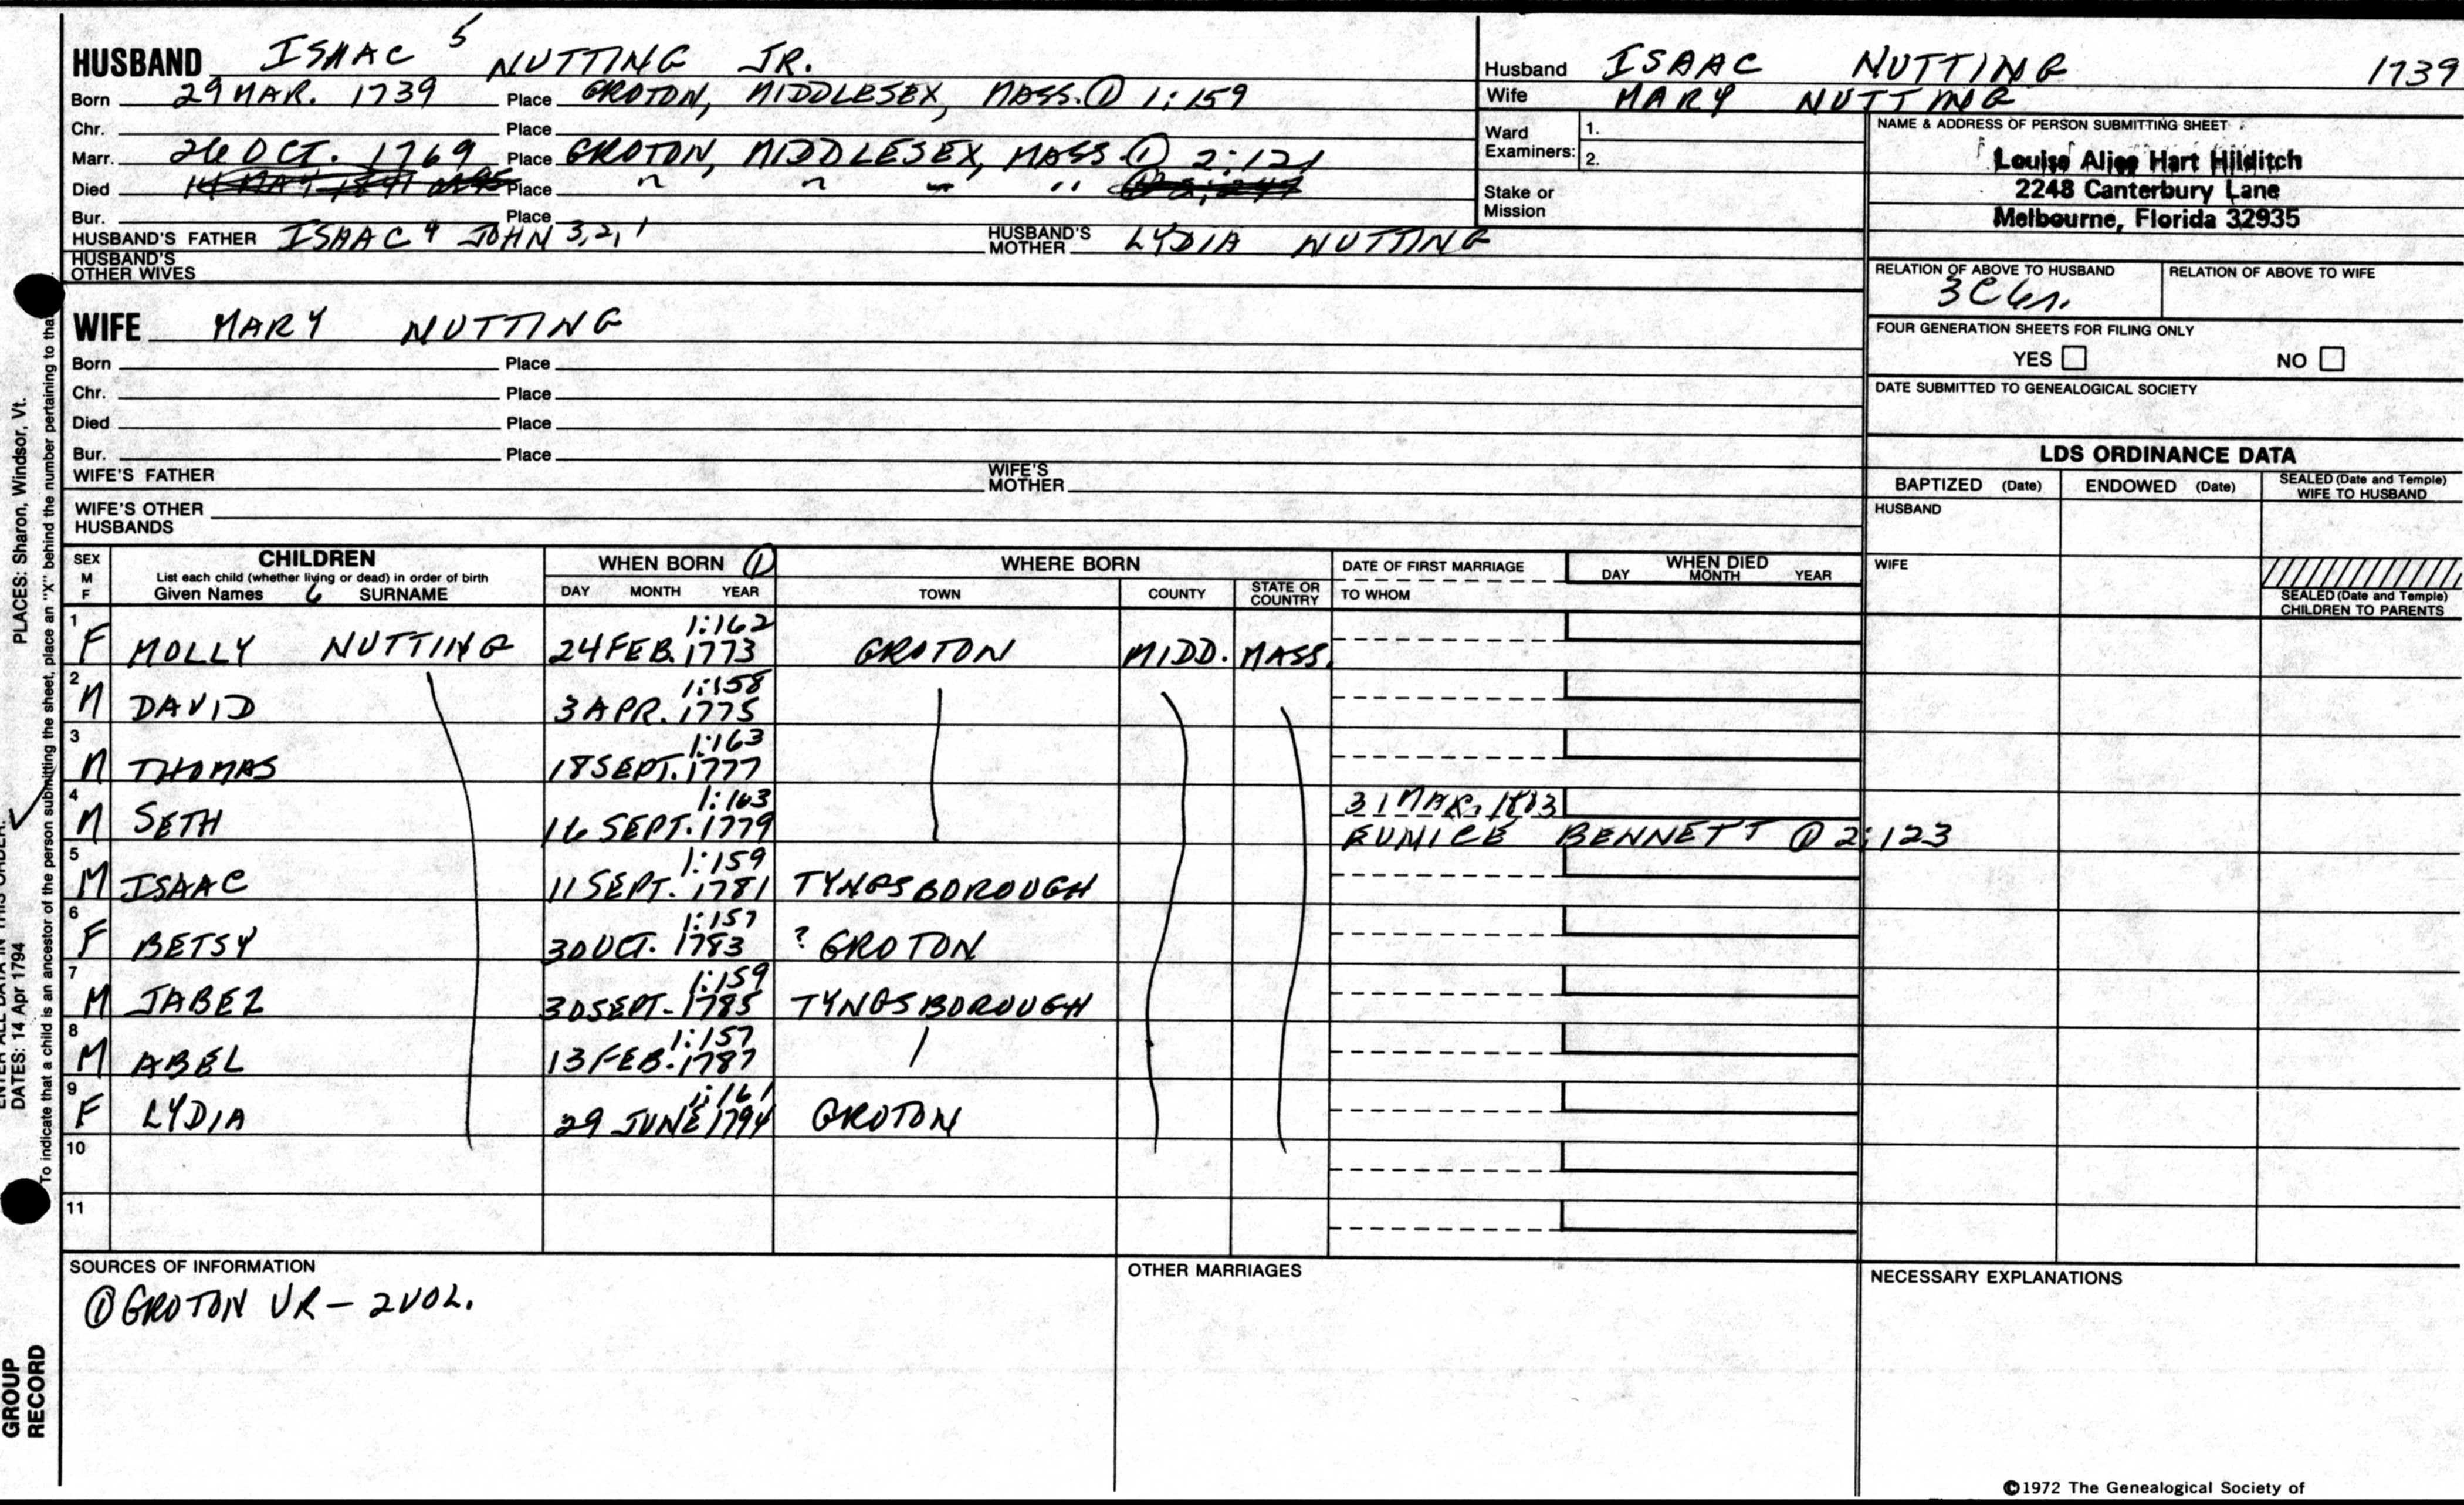 HUSBAND ISAAC 5 NUTTING JR.
Born 29 MAR. 1739 Place GROTON, MIDDLESEX, MASS. ① 1:159
Chr. Place
Marr. 26 OCT. 1769 Place GROTON, MIDDLESEX, MASS. ① 2:121
Died Place " " " "
Bur. Place
HUSBAND'S FATHER ISAAC 4 JOHN 3,2,1 HUSBAND'S MOTHER LYDIA NUTTING
HUSBAND'S OTHER WIVES
Husband ISAAC NUTTING 1739
Wife MARY NUTTING
Ward Examiners: 1.
2.
Stake or Mission
NAME & ADDRESS OF PERSON SUBMITTING SHEET
Louise Alice Hart Hilditch
2248 Canterbury Lane
Melbourne, Florida 32935
RELATION OF ABOVE TO HUSBAND RELATION OF ABOVE TO WIFE
FOUR GENERATION SHEETS FOR FILING ONLY
YES NO
DATE SUBMITTED TO GENEALOGICAL SOCIETY
WIFE MARY NUTTING
Born Place
Chr. Place
Died Place
Bur. Place
WIFE'S FATHER WIFE'S MOTHER
WIFE'S OTHER HUSBANDS
LDS ORDINANCE DATA
BAPTIZED (Date) ENDOWED (Date) SEALED (Date and Temple) WIFE TO HUSBAND
HUSBAND
WIFE
SEALED (Date and Temple) CHILDREN TO PARENTS
SEX M F
CHILDREN
List each child (whether living or dead) in order of birth
Given Names 6 SURNAME
WHEN BORN ①
DAY MONTH YEAR
WHERE BORN
TOWN COUNTY STATE OR COUNTRY
DATE OF FIRST MARRIAGE
TO WHOM
WHEN DIED
DAY MONTH YEAR
1 1:162
F MOLLY NUTTING 24 FEB. 1773 GROTON MIDD. MASS.
2 1:158
M DAVID 3 APR. 1775
3 1:163
M THOMAS 18 SEPT. 1777
4 1:163 31 MAR. 1803
M SETH 16 SEPT. 1779 EUNICE BENNETT ① 2:123
5 1:159
M ISAAC 11 SEPT. 1781 TYNGSBOROUGH
6 1:157
F BETSY 30 OCT. 1783 ? GROTON
7 1:159
M JABEZ 30 SEPT. 1785 TYNGSBOROUGH
8 1:157
M ABEL 13 FEB. 1787
9 1:161
F LYDIA 29 JUNE 1794 GROTON
10
11
SOURCES OF INFORMATION
① GROTON VR - 2 VOL.
OTHER MARRIAGES
NECESSARY EXPLANATIONS
©1972 The Genealogical Society of
PLACES: Sharon, Windsor, Vt.
DATES: 14 Apr 1794
To indicate that a child is an ancestor of the person submitting the sheet, place an "X" behind the number pertaining to that
GROUP
RECORD